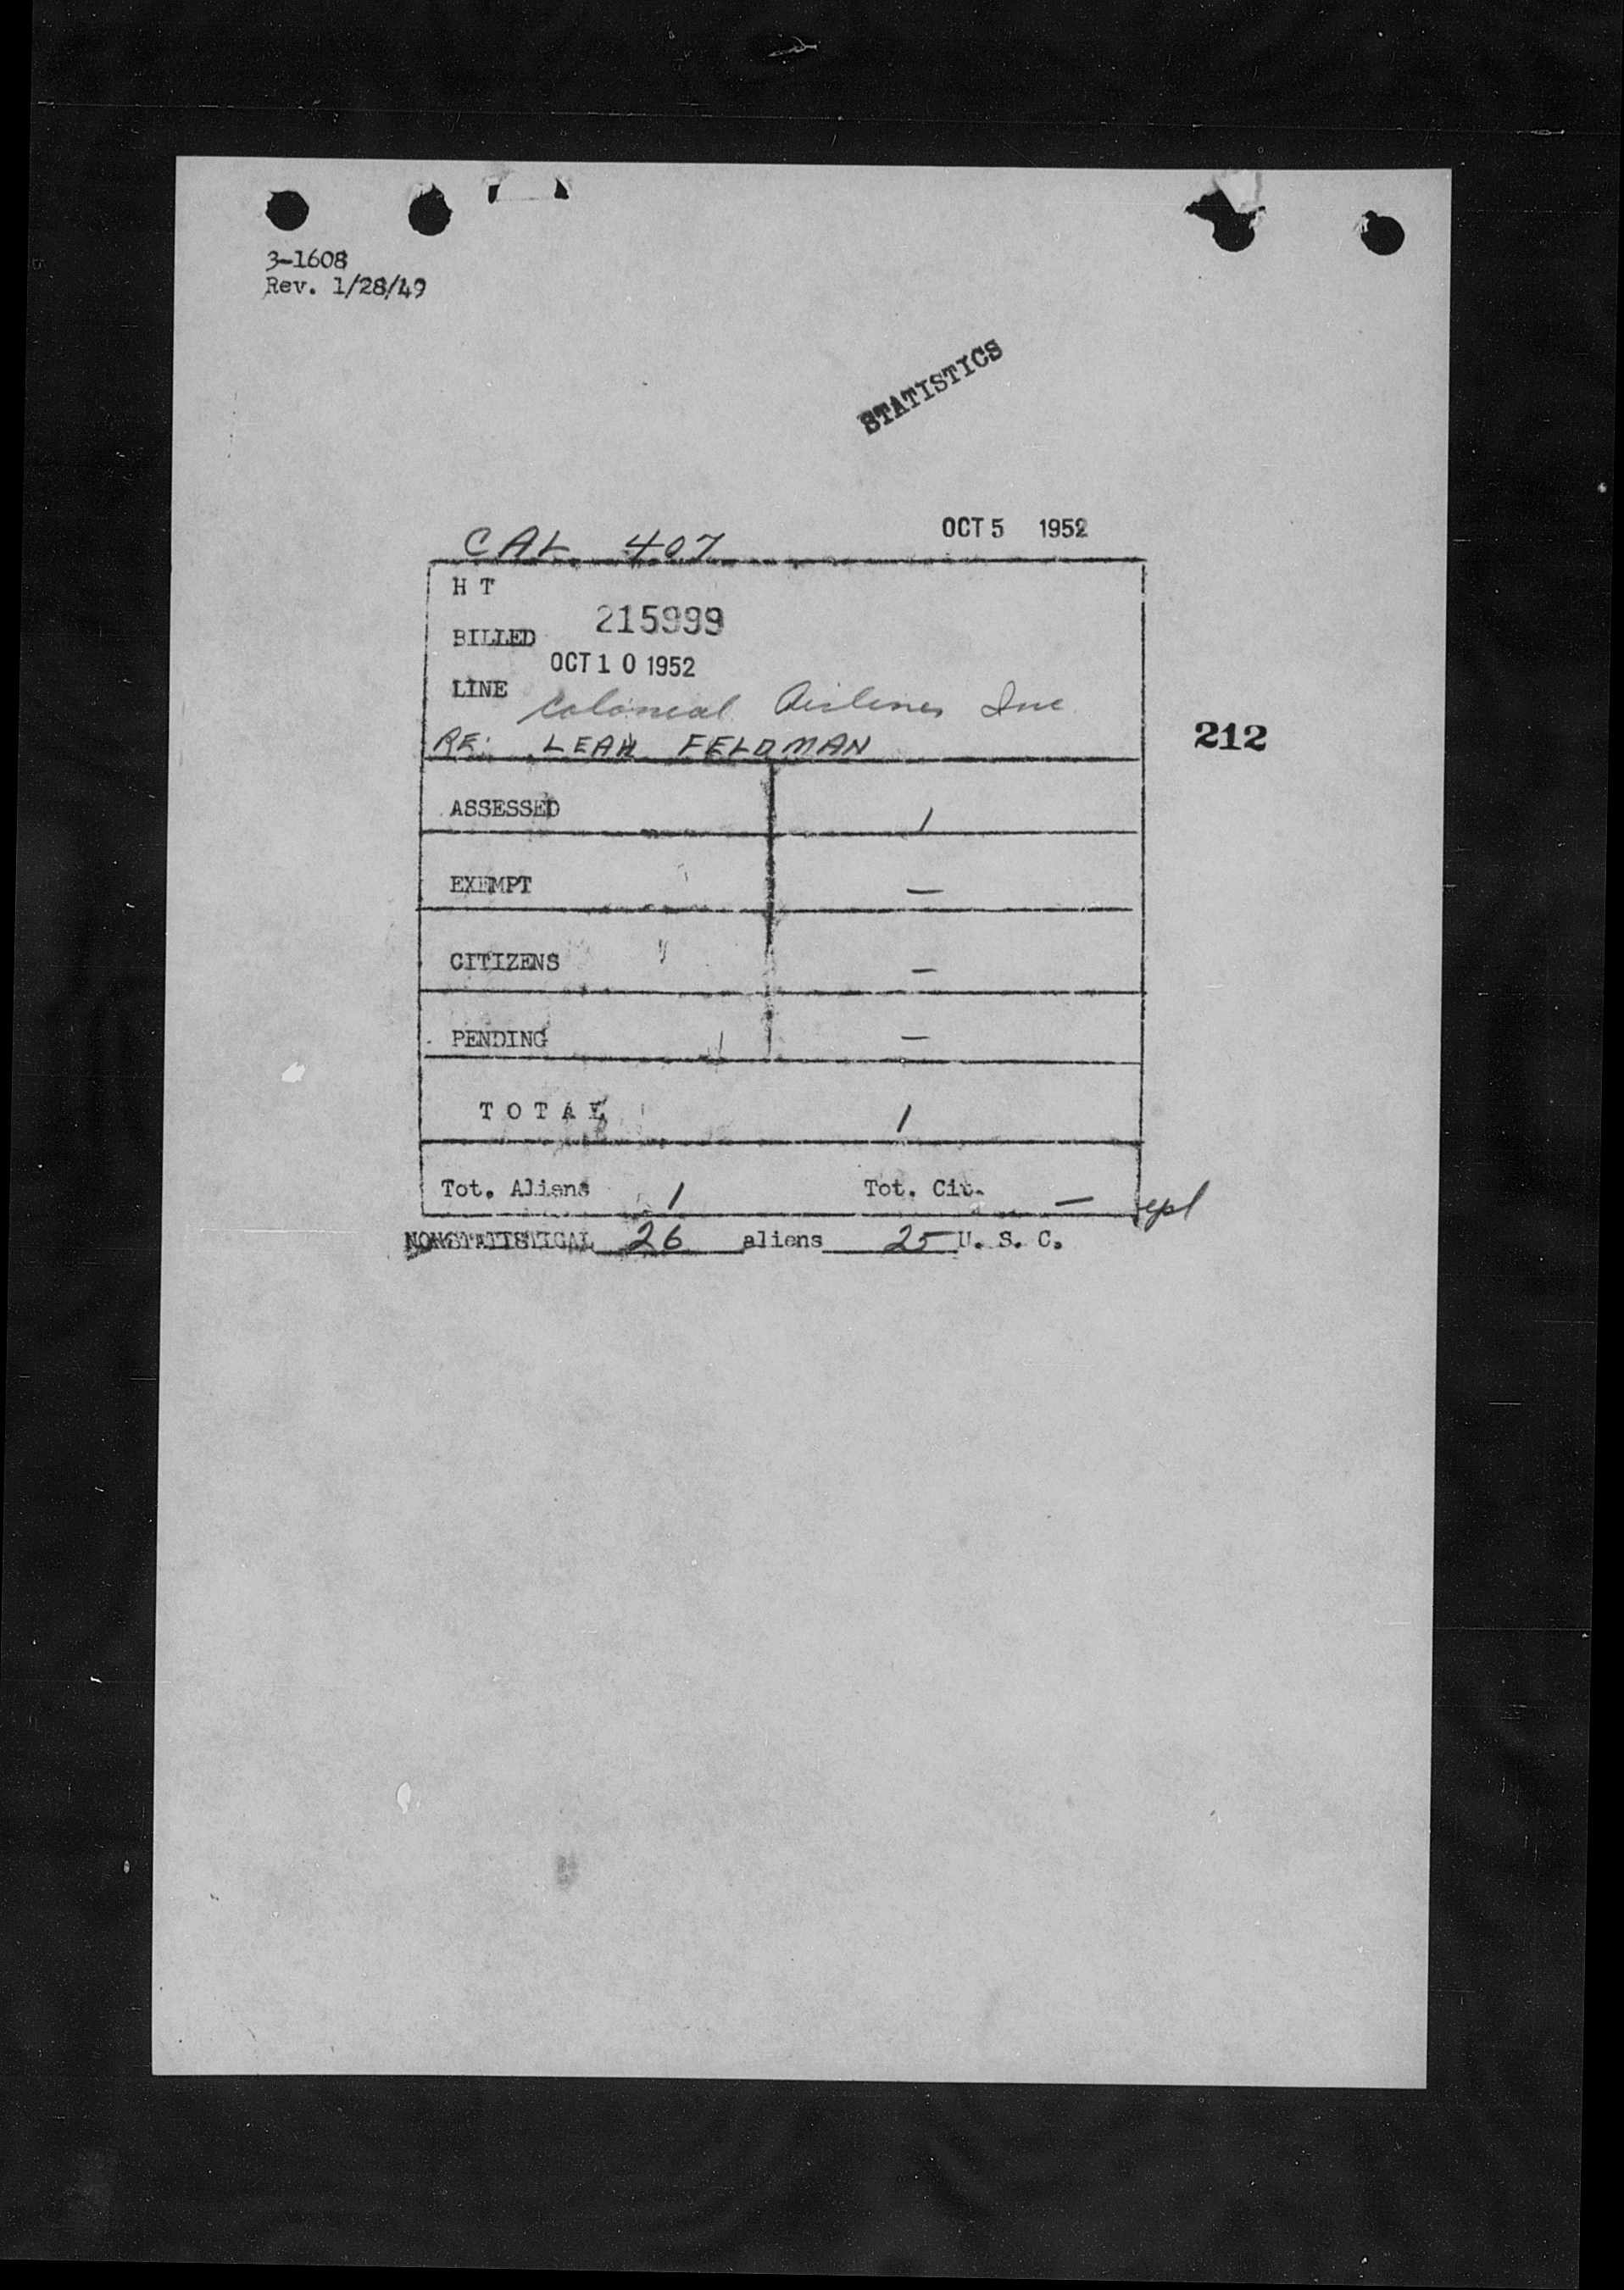 3-1608
Rev. 1/28/49
STATISTICS
CAL 407 OCT 5 1952
H T
BILLED 215999
OCT 10 1952
LINE Colonial Airlines Inc
RE: LEAH FELDMAN
212
ASSESSED 1
EXEMPT —
CITIZENS —
PENDING —
TOTAL 1
Tot. Aliens 1 Tot. Cit. —
NONSTATISTICAL 26 aliens 25 U. S. C.